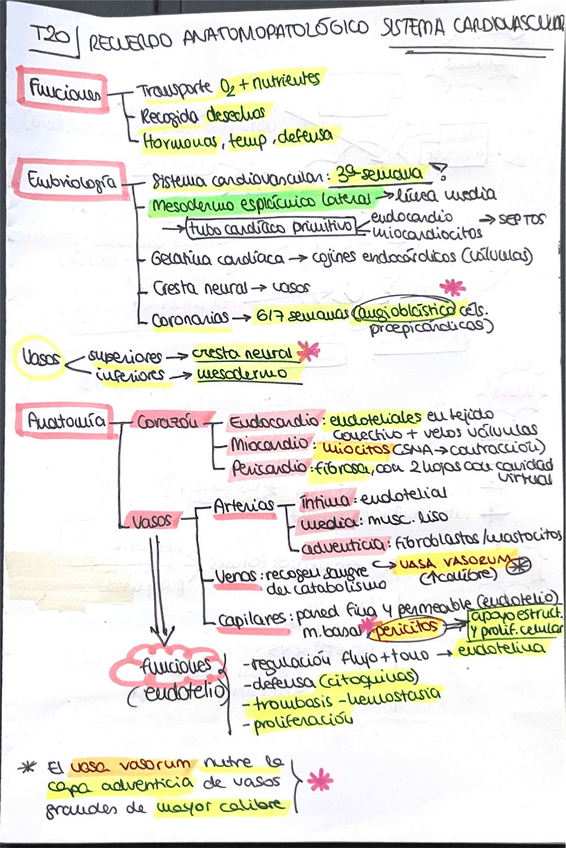 T20 | RECUERDO ANATOMOPATOLÓGICO SISTEMA CARDIOVASCULAR
Funciones
Transporte O2 + nutrientes
Recogida desechos
Hormonas, temp, defensa
Embriología
Sistema cardiovascular: 3ª semana
Mesodermo esplácnico lateral → línea media
→ tubo cardíaco primitivo
endocardio
miocardiocitos
→ SEPTOS
Gelatina cardíaca → cojines endocárdicos (válvulas)
Cresta neural → vasos
Coronarias → 6/7 semanas (angioblástico céls.
proepicárdicas)
Vasos
superiores → cresta neural
inferiores → mesodermo
Anatomía
Corazón
Endocardio: endoteliales en tejido
conectivo + velos válvulas
Miocardio: miocitos (SNA → contracción)
Pericardio: fibrosa, con 2 hojas con cavidad
virtual
Vasos
Arterias
íntima: endotelial
media: musc. liso
adventicia: fibroblastos/mastocitos
→ VASA VASORUM *
(↑calibre)
Venas: recogen sangre
del catabolismo
Capilares: pared fina y permeable (endotelio)
m. basal
pericitos → apoyo estruct.
y prolif. celular
funciones
(endotelio)
- regulación flujo + tono → endotelina
- defensa (citoquinas)
- trombosis - hemostasia
- proliferación
* El vasa vasorum nutre la
capa adventicia de vasos
grandes de mayor calibre